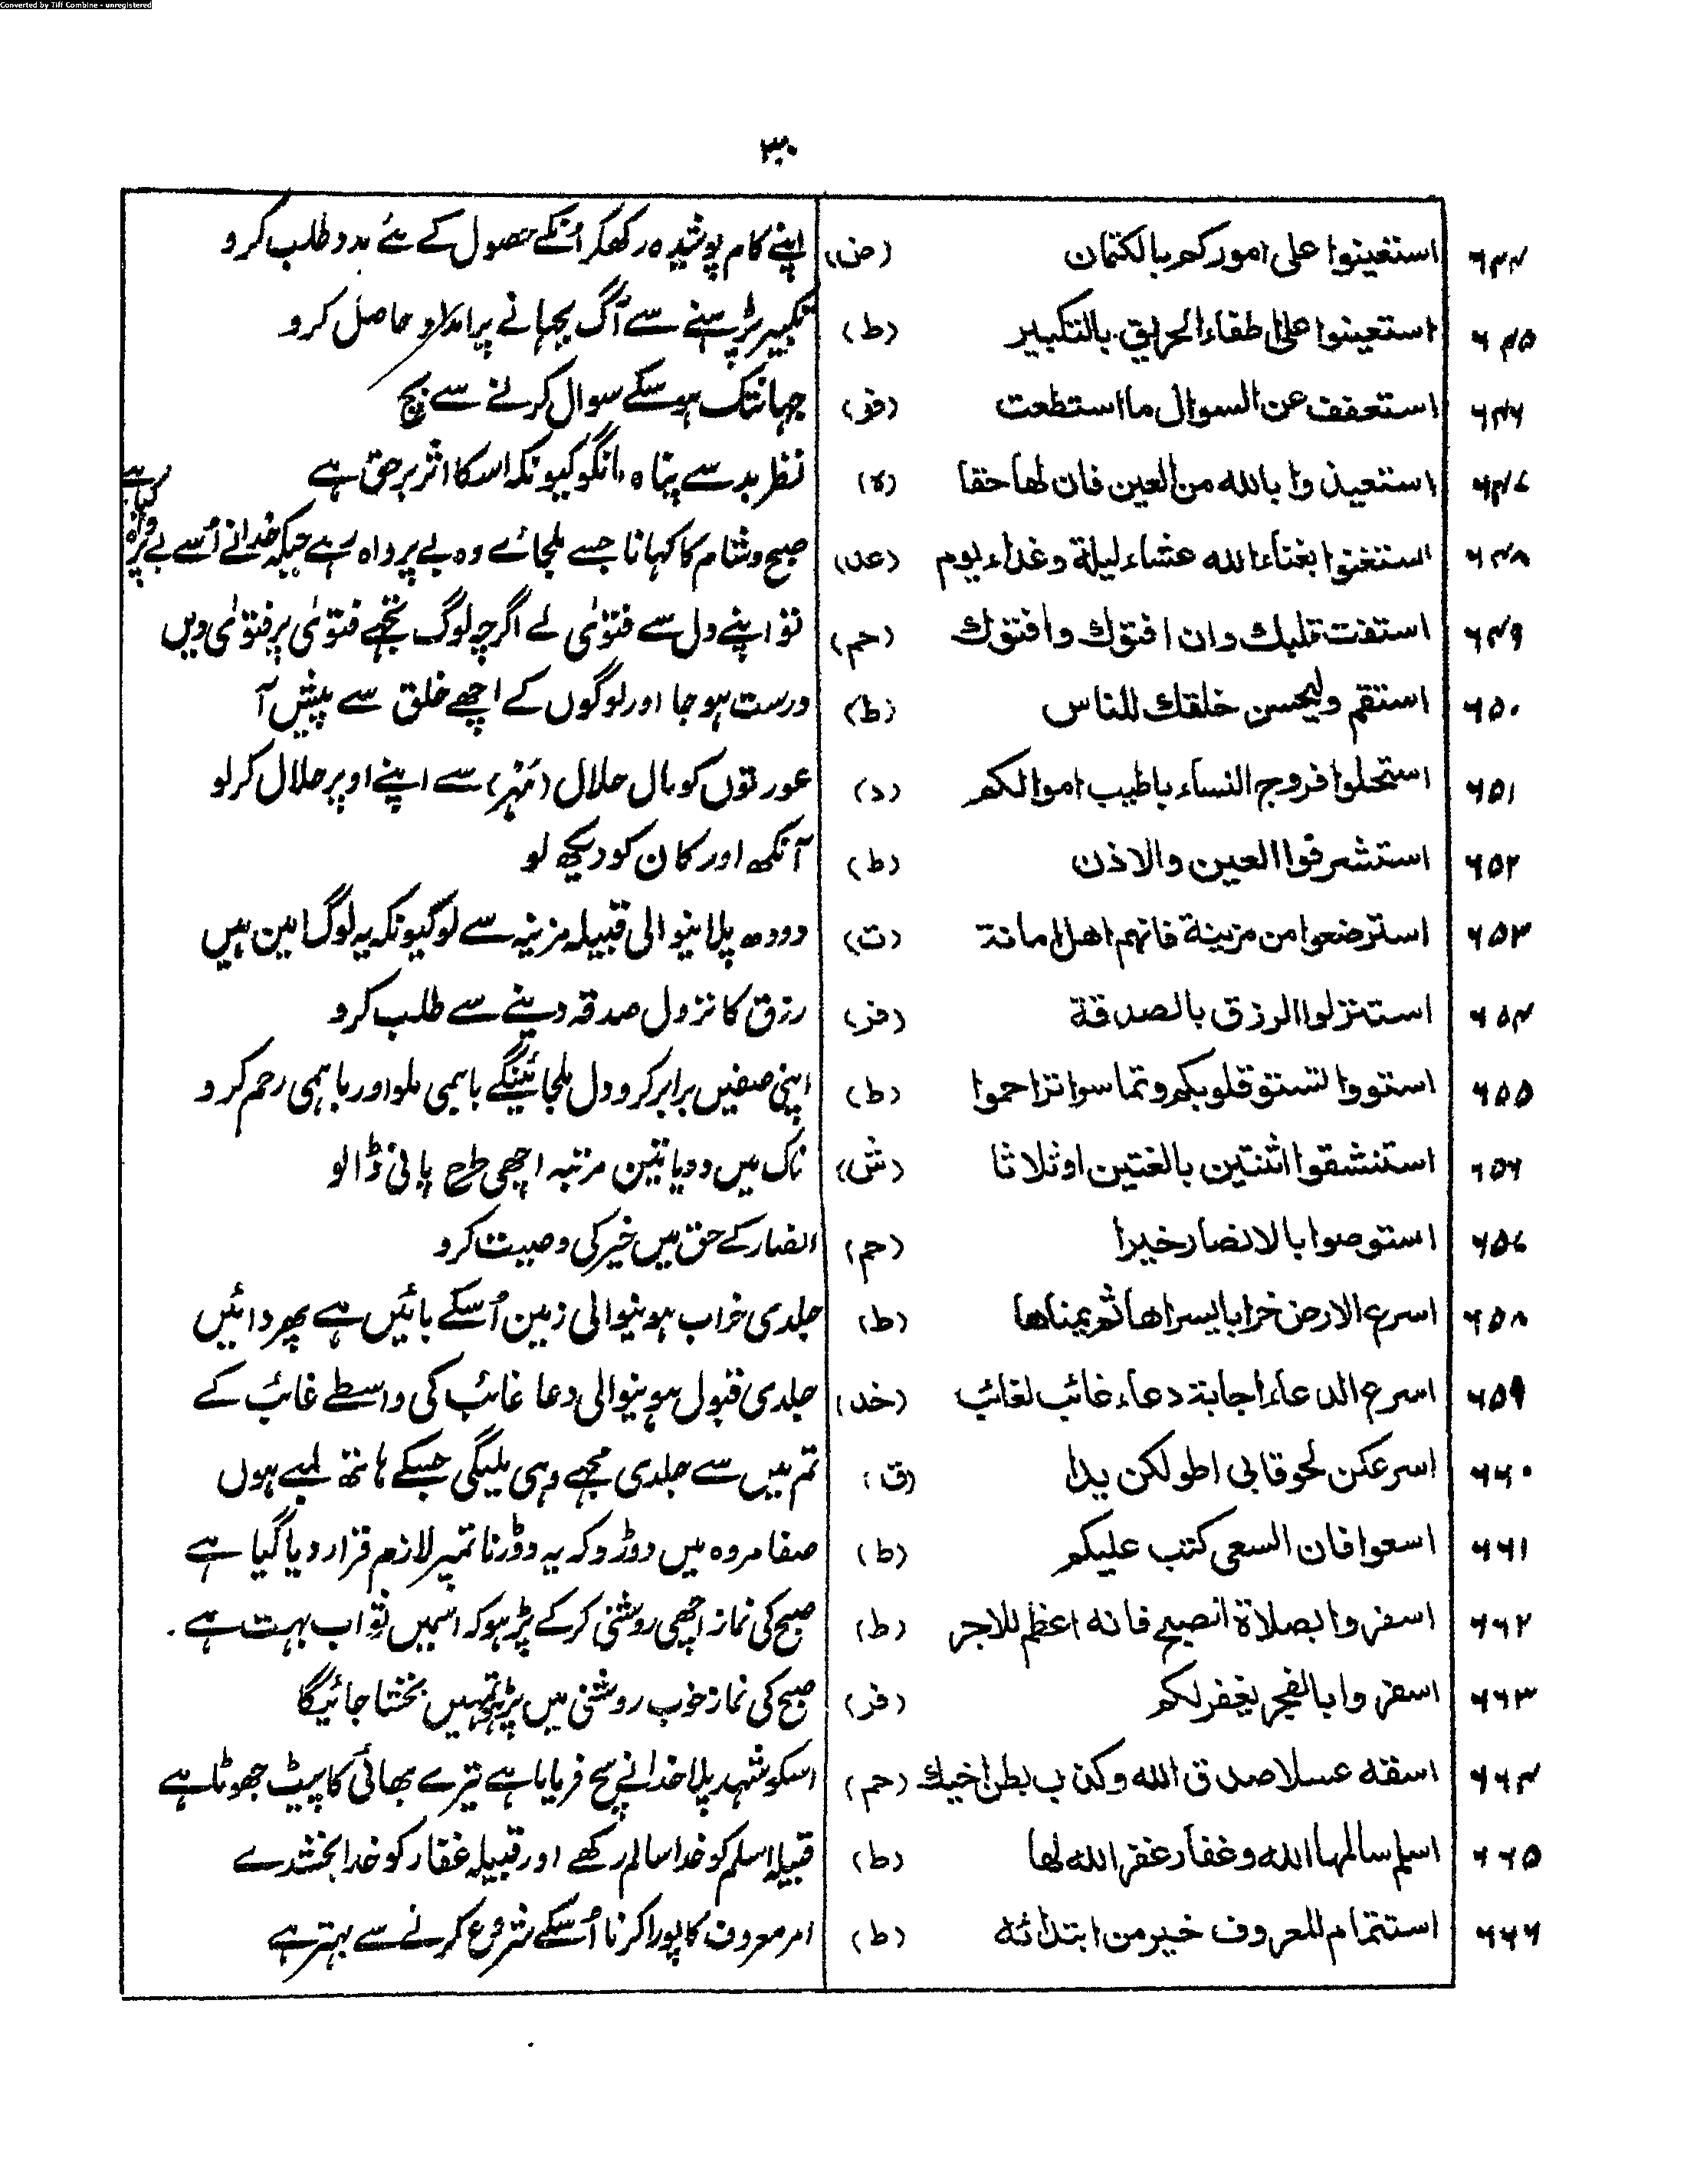 Converted by Tiff Combine - unregistered
۳۰
۶۴۴ استعینوا علی امورکم بالکتمان (ض) اپنے کام پوشیدہ رکھکر اُنکے حصول کے لئے مدد طلب کرو
۶۴۵ استعینوا علی اطفاء الحریق بالتکبیر (ط) تکبیر پڑہنے سے آگ بجہانے پر امداد حاصل کرو
۶۴۶ استعفف عن السوال ما استطعت (فر) جہانتک ہوسکے سوال کرنے سے بچ
۶۴۷ استعیذوا باللہ من العین فان لھا حقا (ہ) نظر بد سے پناہ مانگو کیونکہ اسکا اثر برحق ہے
۶۴۸ استغنوا بغناء اللہ عشاء لیلة وغداء یوم (عد) صبح وشام کا کہانا جسے ملجائے وہ بے پرواہ رہے جبکہ خدانے اُسے بے پرواہ کیا ہے
۶۴۹ استفت قلبك وان افتوك وافتوك (حم) تو اپنے دل سے فتوٰی لے اگرچہ لوگ تجھے فتوٰی پر فتوٰی دیں
۶۵۰ استقم ولیحسن خلقك للناس (ط) درست ہوجا اور لوگوں کے اچھے خلق سے پیش آ
۶۵۱ استحلوا فروج النساء باطیب اموالکم (د) عورتوں کو مال حلال (مَہْر) سے اپنے اوپر حلال کرلو
۶۵۲ استشرفوا العین والاذن (ط) آنکھ اور کان کو دیکھ لو
۶۵۳ استرضعوا من مزینة فانہم اھل امانة (ت) دودھ پلانیوالی قبیلہ مزینہ سے لو کیونکہ یہ لوگ امین ہیں
۶۵۴ استنزلوا الرزق بالصدقة (فر) رزق کا نزول صدقہ دینے سے طلب کرو
۶۵۵ استووا تستو قلوبکم وتماسوا تراحموا (ط) اپنی صفیں برابر کرو دل ملجائینگے باہمی ملو اور باہمی رحم کرو
۶۵۶ استنشقوا اثنتین بالغتین او ثلاثا (ش) ناک میں دو یا تین مرتبہ اچھی طرح پانی ڈالو
۶۵۷ استوصوا بالانصار خیرا (حم) انصار کے حق میں خیر کی وصیت کرو
۶۵۸ اسرع الارض خرابا یسراھا ثم یمناھا (ط) جلدی خراب ہونیوالی زمین اُسکے بائیں ہے پھر دائیں
۶۵۹ اسرع الدعاء اجابة دعاء غائب لغائب (خد) جلدی قبول ہونیوالی دعا غائب کی واسطے غائب کے
۶۶۰ اسرعکن لحوقا بی اطولکن یدا (ق) تم میں سے جلدی مجھے وہی ملیگی جسکے ہاتھ لمبے ہوں
۶۶۱ اسعوا فان السعی کتب علیکم (ط) صفا مروہ میں دوڑو کہ یہ دوڑنا تمپر لازم قرار دیا گیا ہے
۶۶۲ اسفروا بصلاة الصبح فانه اعظم للاجر (ط) صبح کی نماز اچھی روشنی کرکے پڑہو کہ اسمیں ثواب بہت ہے۔
۶۶۳ اسفروا بالفجر یغفر لکم (فر) صبح کی نماز خوب روشنی میں پڑہو تمہیں بخشا جائیگا
۶۶۴ اسقه عسلا صدق الله وکذب بطن اخیك (حم) اسکو شہد پلا خدانے سچ فرمایا ہے تیرے بھائی کا پیٹ جھوٹا ہے
۶۶۵ اسلم سالمہا اللہ وغفار غفر اللہ لہا (ط) قبیلہ اسلم کو خدا سالم رکھے اور قبیلہ غفار کو خدا بخشدے
۶۶۶ استتمام المعروف خیر من ابتدائه (ط) امر معروف کا پورا کرنا اُسکے شروع کرنے سے بہتر ہے